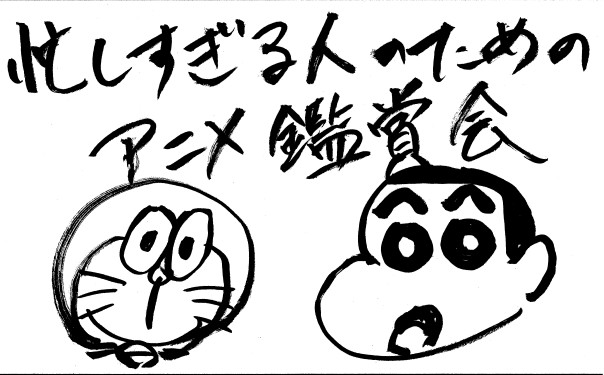 忙しすぎる人のための
アニメ鑑賞会